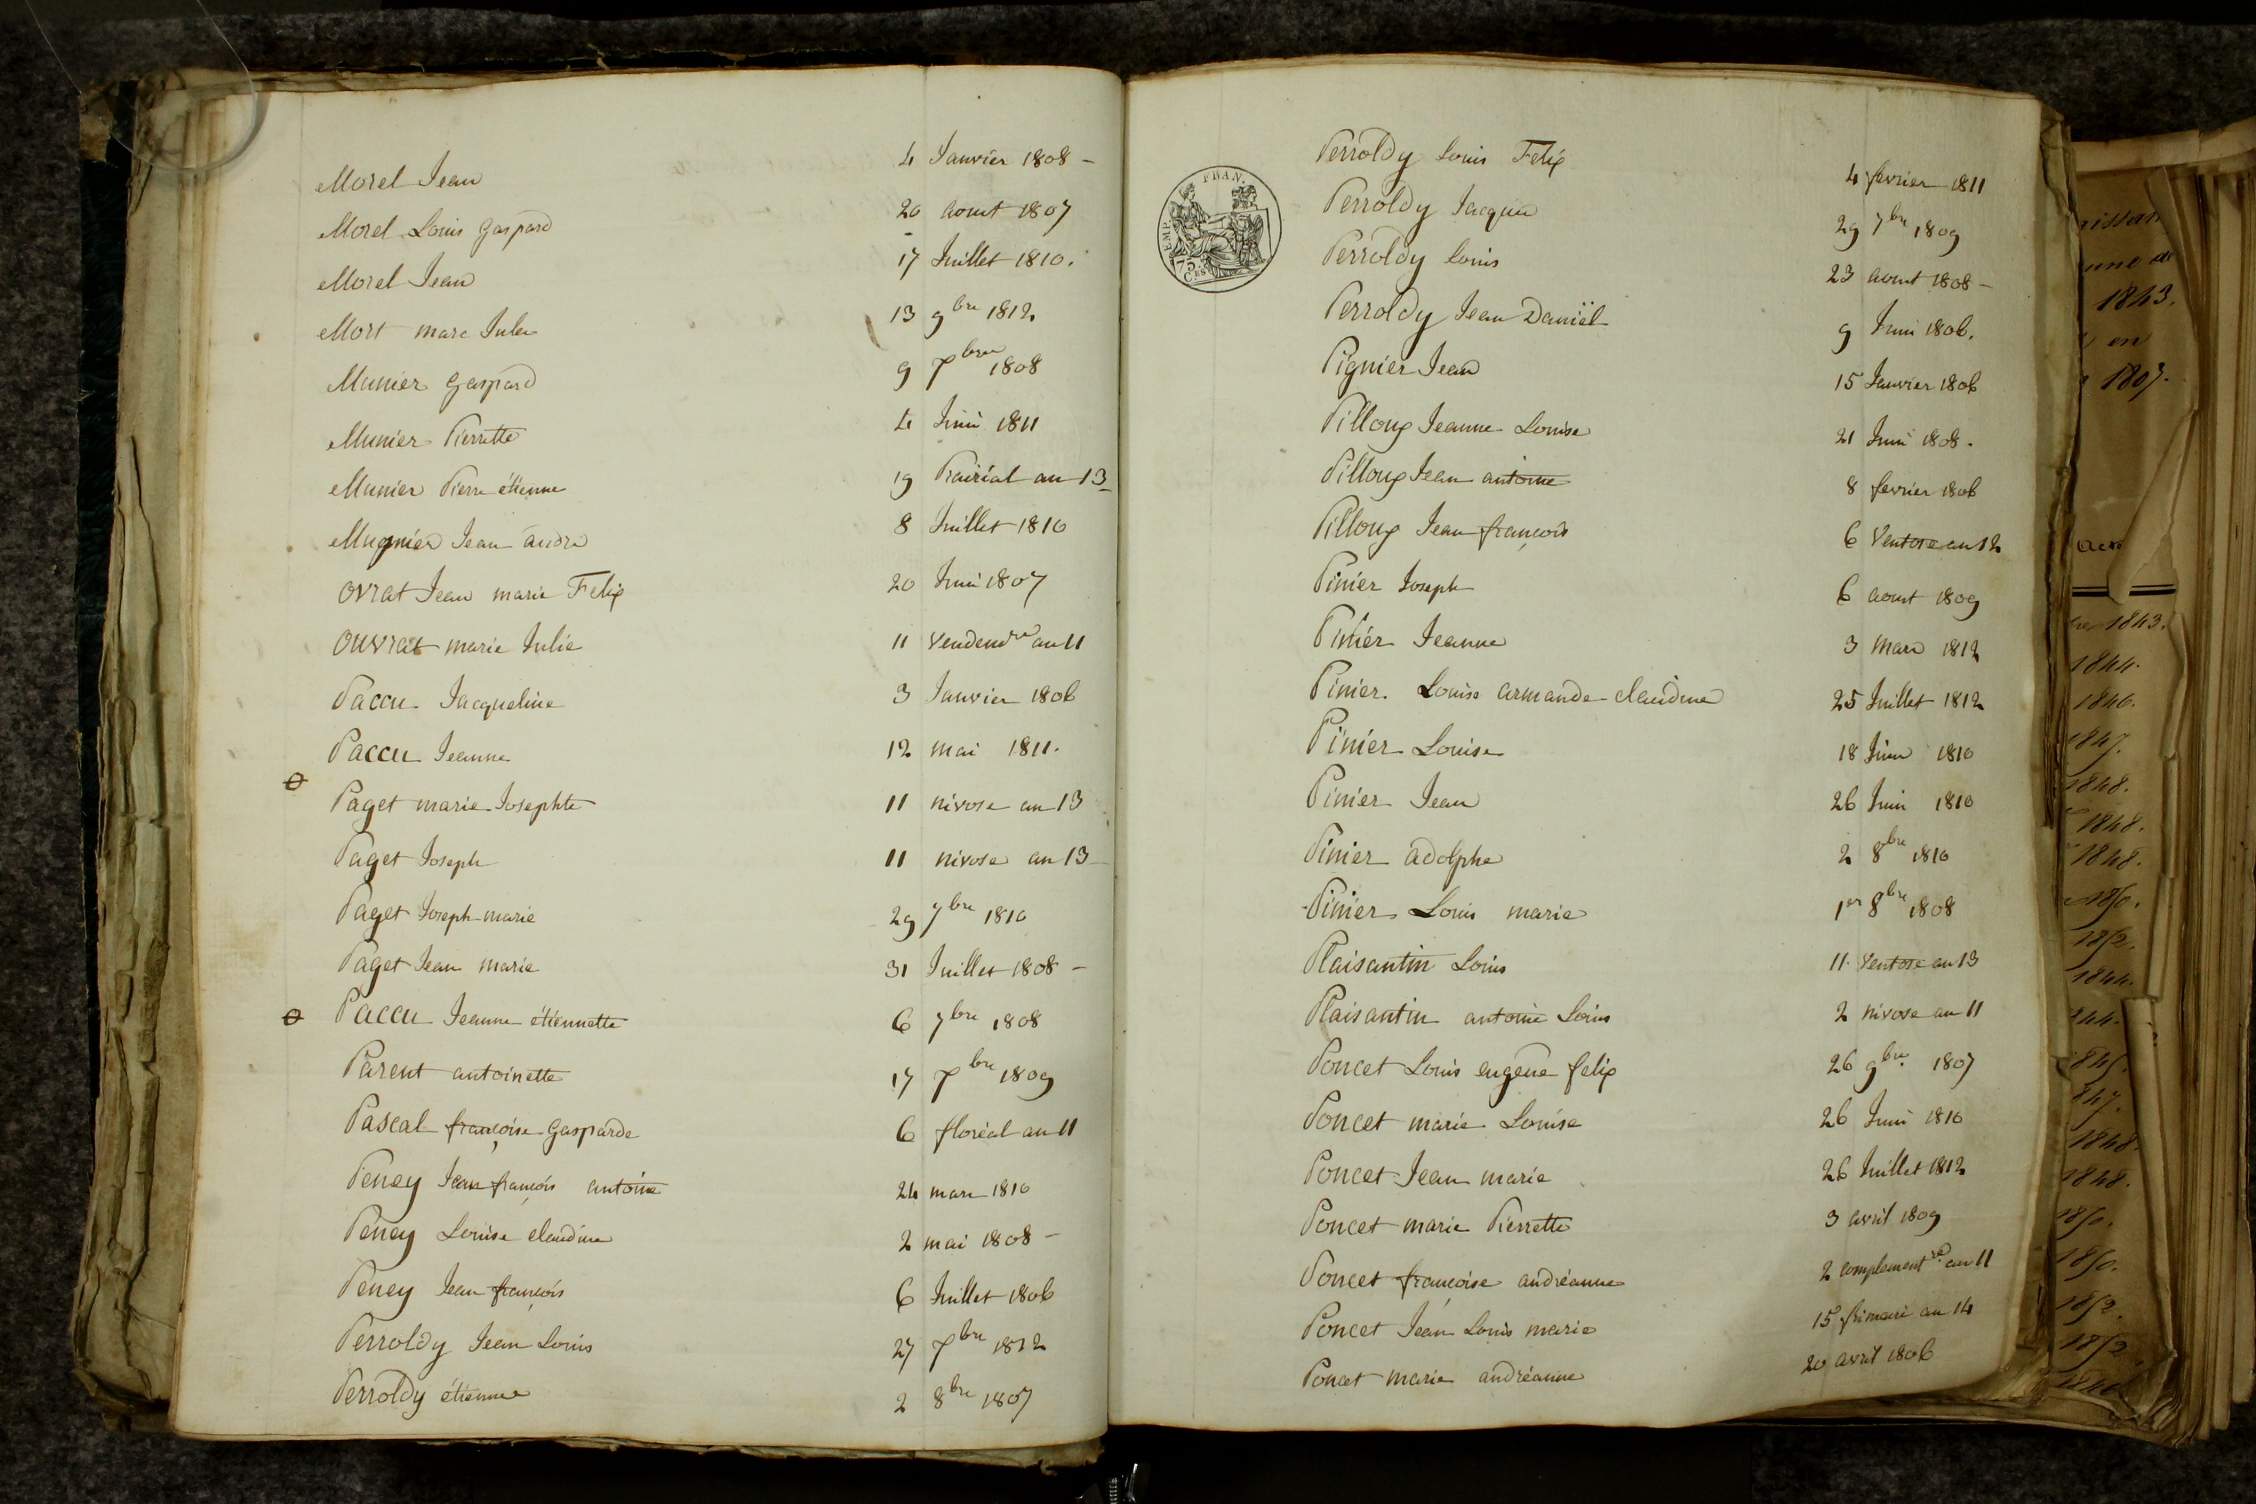 Morel Jean 4 Janvier 1808 -
Morel Louis Gaspard 20 aout 1807
Morel Jean 17 Juillet 1810.
Mort marc Jules 13 9bre 1812
Munier Gaspard 9 7bre 1808
Munier Pierrette 4 Juin 1811
Munier Pierre étienne 19 Prairial an 13
Mugnier Jean andré 8 Juillet 1810
Ovrat Jean marie Felix 20 Juin 1807
Ouvrat marie Julie 11 vendemre an 11
Paccu Jacqueline 3 Janvier 1806
Paccu Jeanne 12 mai 1811.
Paget marie Josephte 11 nivose an 13
Paget Joseph 11 nivose an 13
Paget Joseph marie 29 7bre 1810
Paget Jean marie 31 Juillet 1808 -
Paccu Jeanne étiennette 6 7bre 1808
Parent antoinette 17 7bre 1809
Pascal françoise Gasparde 6 floréal an 11
Peney Jean françois antoine 24 mars 1810
Peney Louise claudine 2 mai 1808 -
Peney Jean françois 6 Juillet 1806
Perroldy Jean Louis 27 7bre 1812
Perroldy étienne 2 8bre 1807
EMP. FRAN.
75 C.es
Perroldy Louis Felix 4 fevrier 1811
Perroldy Jacques 29 7bre 1809
Perroldy Louis 23 aout 1808 -
Perroldy Jean Daniël 9 Juin 1806.
Pignier Jean 15 Janvier 1806
Pilloux Jeanne Louise 21 Juin 1808.
Pilloux Jean antoine 8 fevrier 1806
Pilloux Jean françois 6 Ventose an 12
Pinier Joseph 6 aout 1809
Pinier Jeanne 3 mars 1812
Pinier Louise armande claudine 25 Juillet 1812
Pinier Louise 18 Juin 1810
Pinier Jean 26 Juin 1810
Pinier adolphe 2 8bre 1810
Pinier Louis marie 1er 8bre 1808
Plaisantin Louis 11 Ventose an 13
Plaisantin antoine Louis 2 nivose an 11
Poncet Louis eugene felix 26 9bre 1807
Poncet marie Louise 26 Juin 1810
Poncet Jean marie 26 Juillet 1812
Poncet marie Pierrette 3 avril 1809
Poncet françoise andréanne 2 complementre an 11
Poncet Jean Louis marie 15 frimaire an 14
Poncet marie andréanne 20 avril 1806
1843.
en
1807.
1843.
1844.
1846.
1847.
1848.
1848.
1848.
1844.
1848.
1848.